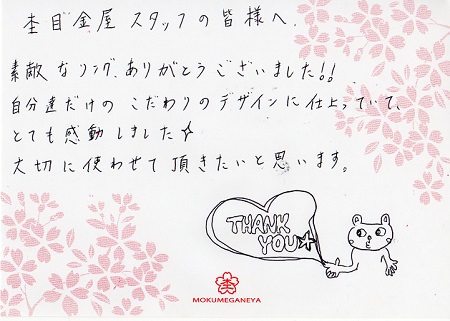 杢目金屋 スタッフの皆様へ.
素敵なリング、ありがとうございました!!
自分達だけの こだわりのデザインに仕上っていて、
とても感動しました☆
大切に使わせて頂きたいと思います。
THANK
YOU★
MOKUMEGANEYA